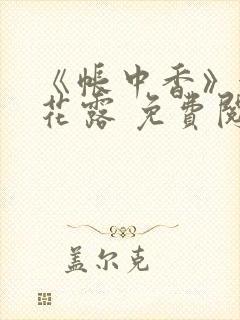 《帐中香》
花露 免費閱
盖尔克